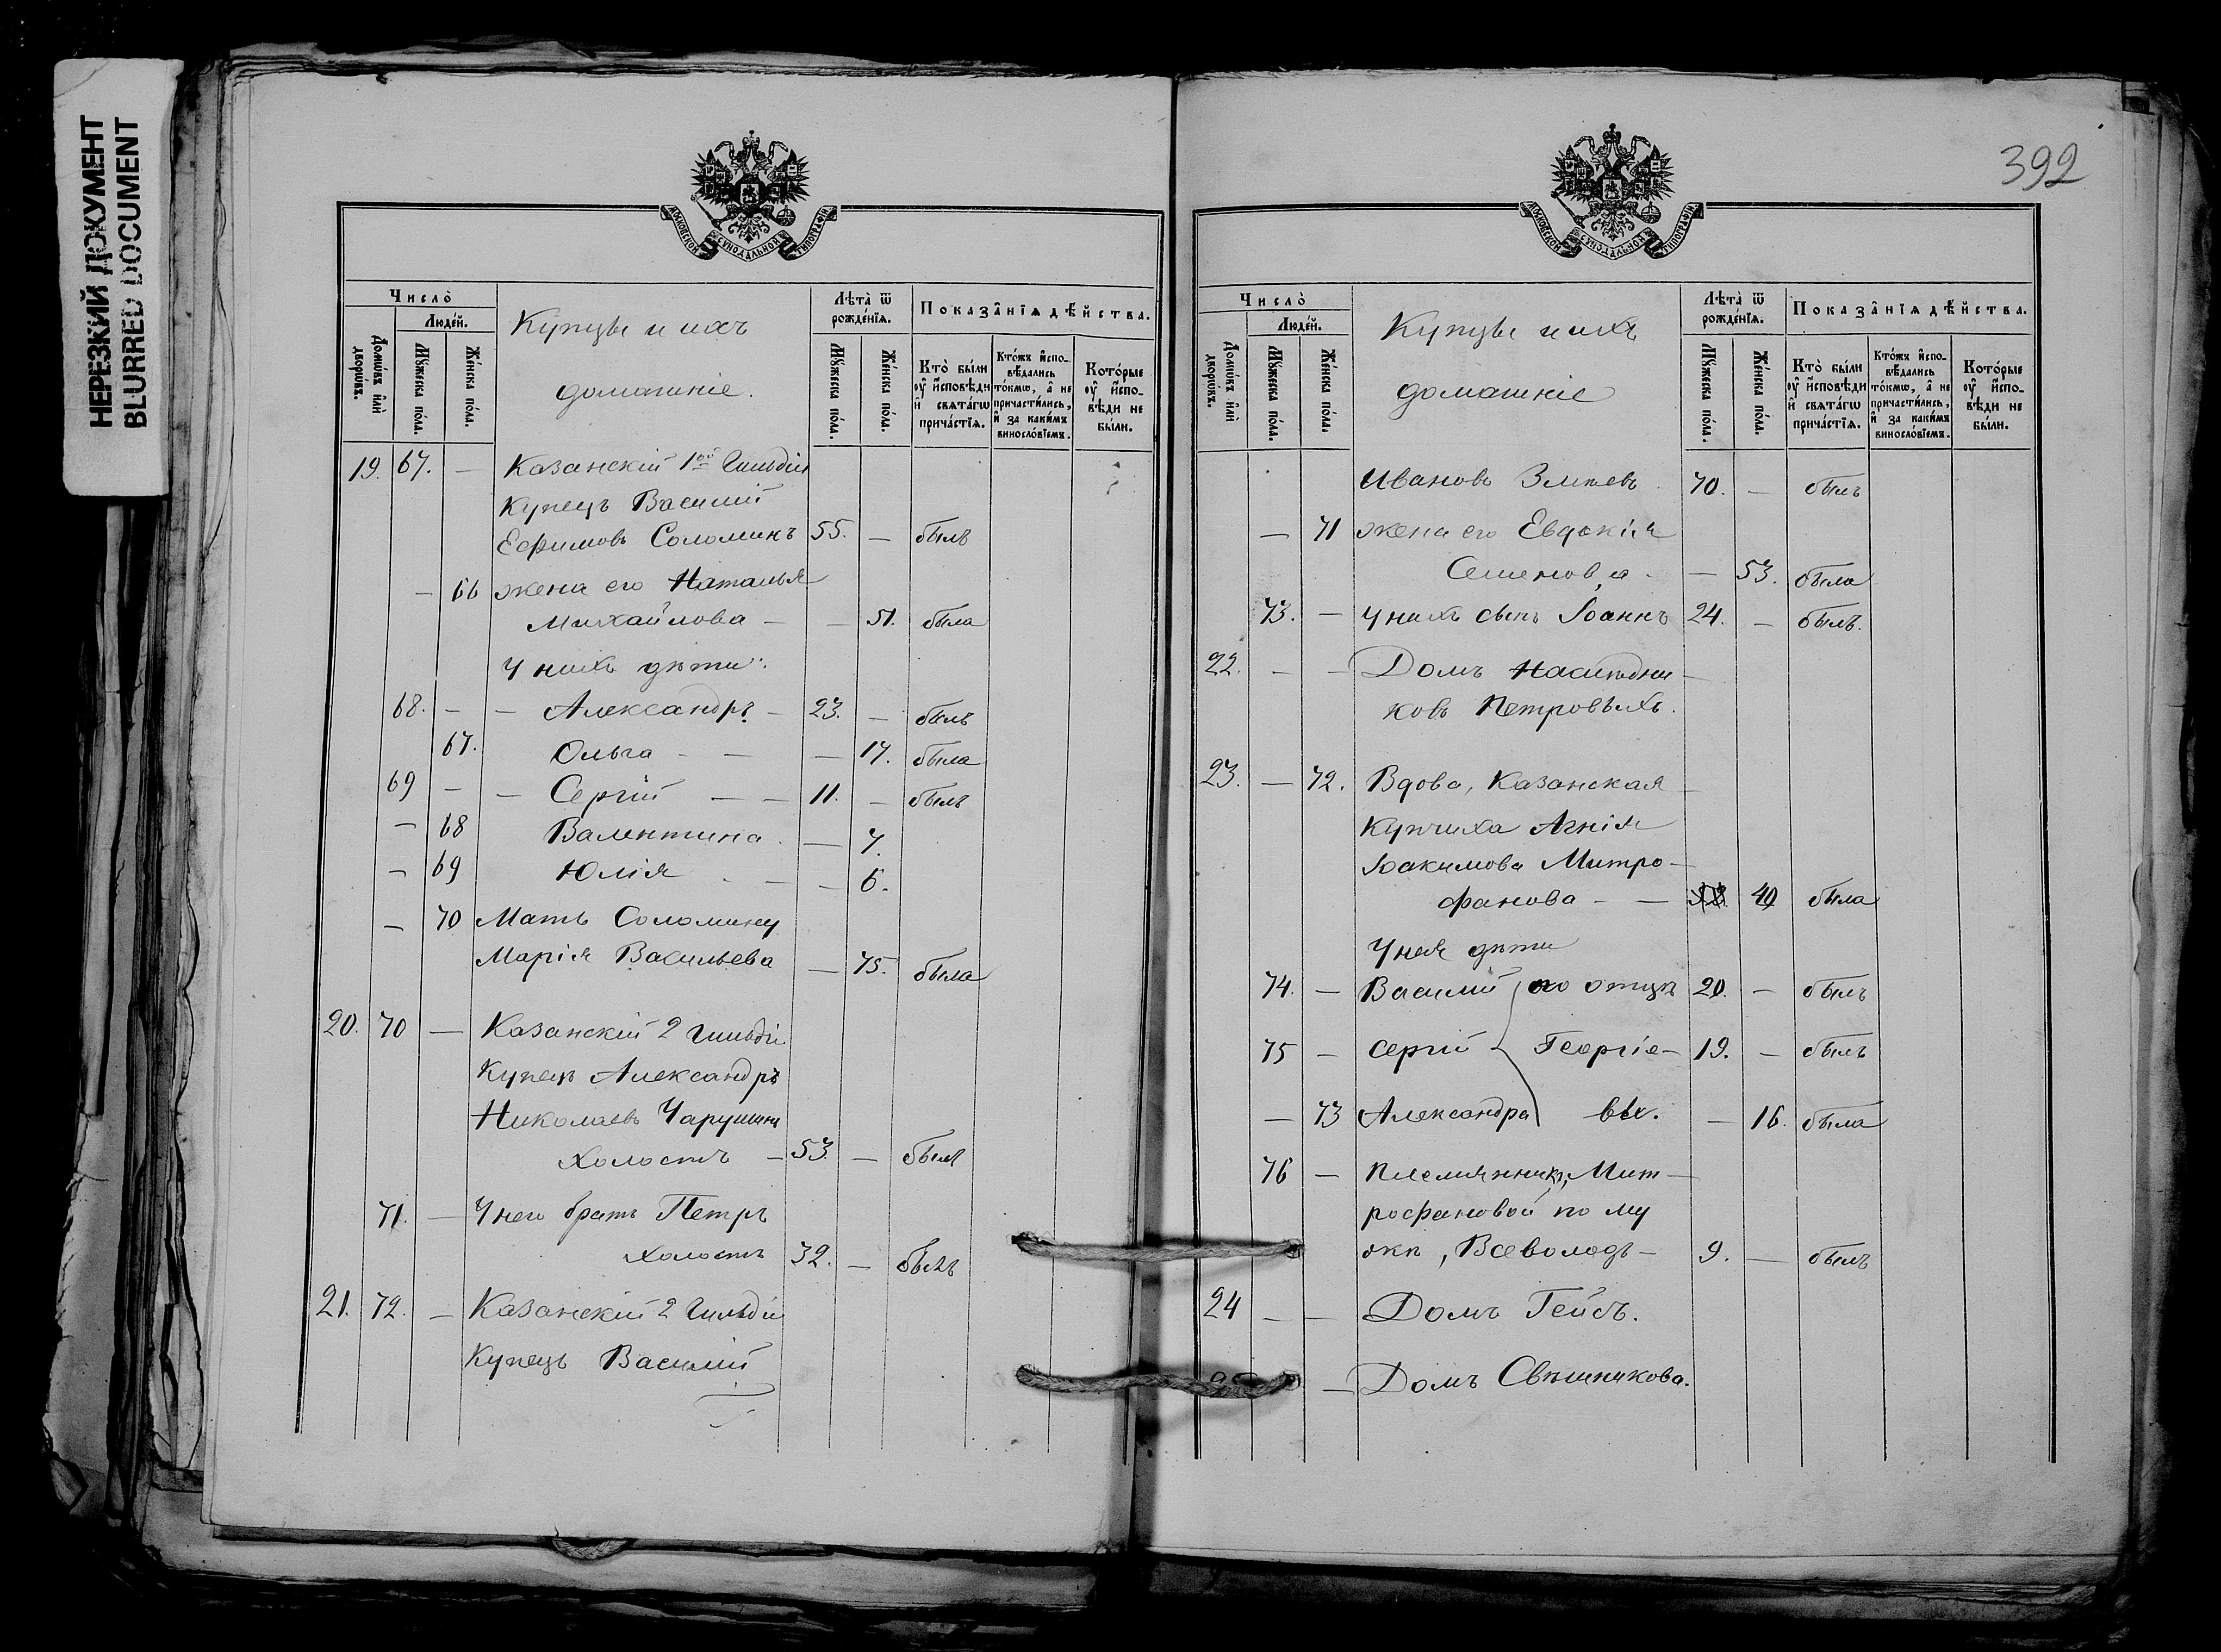 НЕРЕЗКИЙ ДОКУМЕНТ
BLURRED DOCUMENT
МОСКОВСКОЙ СѴНОДАЛЬНОЙ ТИПОГРАФІИ
Число̀
Людей.
Домѡвъ и҆лѝ дворѡвъ.
Мꙋ́жеска по́ла.
Же́нска по́ла.
Купцы и ихъ
домашніе.
Лѣта̀ ѿ рожде́нїѧ.
Мꙋ́жеска по́ла.
Же́нска по́ла.
Показа̑нїѧ дѣ́йства.
Кто̀ бы́ли ᲂу҆ и҆сповѣди и҆ свѧта́гѡ прича́стїѧ.
Кто́жъ и҆спо-вѣдались то́кмѡ, а҆ не причасти́лись, и҆ за каки́мъ винослоо́вїемъ.
Кото́рые ᲂу҆ и҆спо-вѣди не бы́ли.
19. 67. — Казанскій 1ой Гильдіи
Купецъ Василій
Ефимовъ Соломинъ 55. — былъ
— 66 жена его Наталья
Михайлова — — 51. была
У нихъ дѣти:
68. — — Александръ — 23. — былъ
67. Ольга — — — 17. была
69 — — Сергій — — 11. — былъ
— 68 Валентина — 7.
— 69 Юлія — — 6.
— 70 Мать Соломину
Марія Васильева — 75. была
20. 70 — Казанскій 2 Гильдіи
Купецъ Александръ
Николаевъ Чарушинъ
холостъ — 53. — былъ
71. — У него братъ Петръ
холостъ 32. — былъ
21. 72. — Казанскій 2 Гильдіи
Купецъ Василій
392
МОСКОВСКОЙ СѴНОДАЛЬНОЙ ТИПОГРАФІИ
Число̀
Людей.
Домѡвъ и҆лѝ дворѡвъ.
Мꙋ́жеска по́ла.
Же́нска по́ла.
Купцы и ихъ
домашніе
Лѣта̀ ѿ рожде́нїѧ.
Мꙋ́жеска по́ла.
Же́нска по́ла.
Показа̑нїѧ дѣ́йства.
Кто̀ бы́ли ᲂу҆ и҆сповѣди и҆ свѧта́гѡ прича́стїѧ.
Кто́жъ и҆спо-вѣдались то́кмѡ, а҆ не причасти́лись, и҆ за каки́мъ винослоо́вїемъ.
Кото́рые ᲂу҆ и҆спо-вѣди не бы́ли.
Ивановъ Змѣевъ 70. — былъ
— 71 жена его Евдокія
Семенова — 53. была
73. — У нихъ сынъ Іоаннъ 24. — былъ.
22. — — Домъ Наслѣдни-
ковъ Петровыхъ.
23. — 72. Вдова, Казанская
Купчиха Агнія
Іоакимова Митро-
фанова — — 49 была
У нея дѣти
74. — Василій по отцѣ 20. — былъ
75 — Сергій Георгіе- 19. — былъ
— 73 Александра вы. — 16. была
76 — Племянникъ, Мит-
рофановой по му
жѣ, Всеволодъ — 9. — былъ
24 — — Домъ Гейсъ.
— Домъ Свѣшникова.